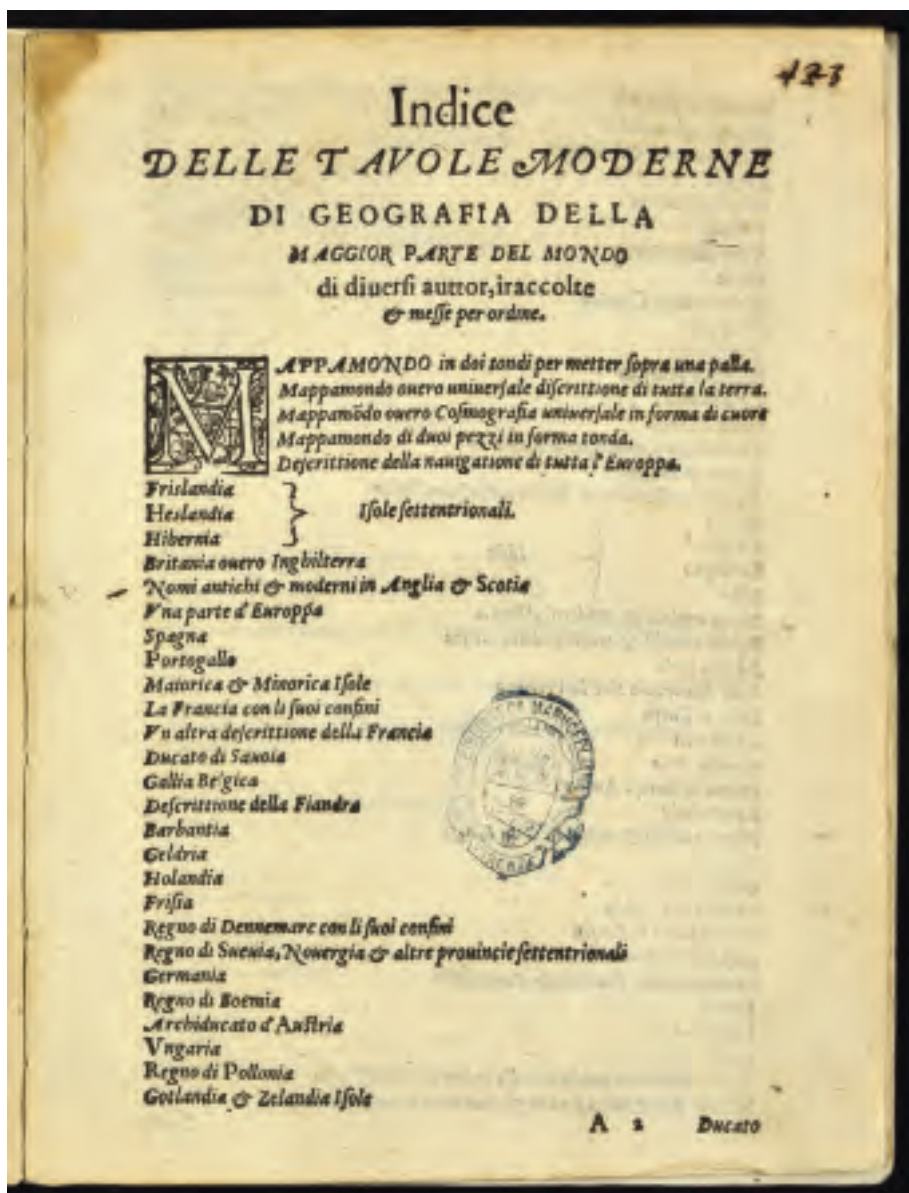 423
Indice
DELLE TAVOLE MODERNE
DI GEOGRAFIA DELLA
MAGGIOR PARTE DEL MONDO
di diuersi auttor,iraccolte
& messe per ordine.
MAPPAMONDO in doi tondi per metter sopra una palla.
Mappamondo ouero uniuersale discrittione di tutta la terra.
Mappamõdo ouero Cosmografia uniuersale in forma di cuore
Mappamondo di duoi pezzi in forma tonda.
Descrittione della nauigatione di tutta l'Europpa.
Frislandia
Heslandia } Isole settentrionali.
Hibernia
Britania ouero Inghilterra
Nomi antichi & moderni in Anglia & Scotia
Vna parte d'Europpa
Spagna
Portogallo
Maiorica & Minorica Isole
La Francia con li suoi confini
Vn altra descrittione della Francia
Ducato di Sauoia
Gallia Belgica
Descrittione della Fiandra
Barbantia
Geldria
Holandia
Frisia
Regno di Dennemarc con li suoi confini
Regno di Sueuia, Nouergia & altre prouincie settentrionali
Germania
Regno di Boemia
Archiducato d'Austria
Vngaria
Regno di Pollonia
Gotlandia & Zelandia Isole
A 2 Ducato